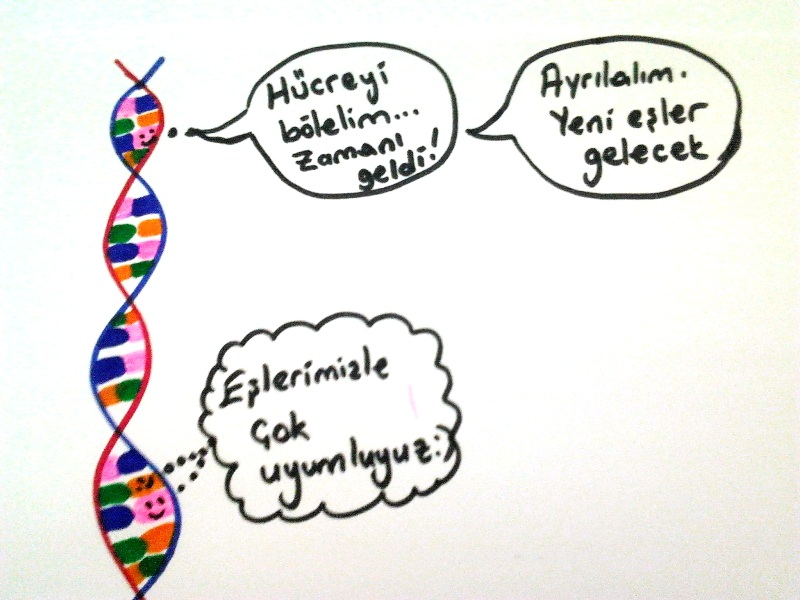 Hücreyi
bölelim...
Zamanı
geldi!
Ayrılalım.
Yeni eşler
gelecek
Eşlerimizle
çok
uyumluyuz:)